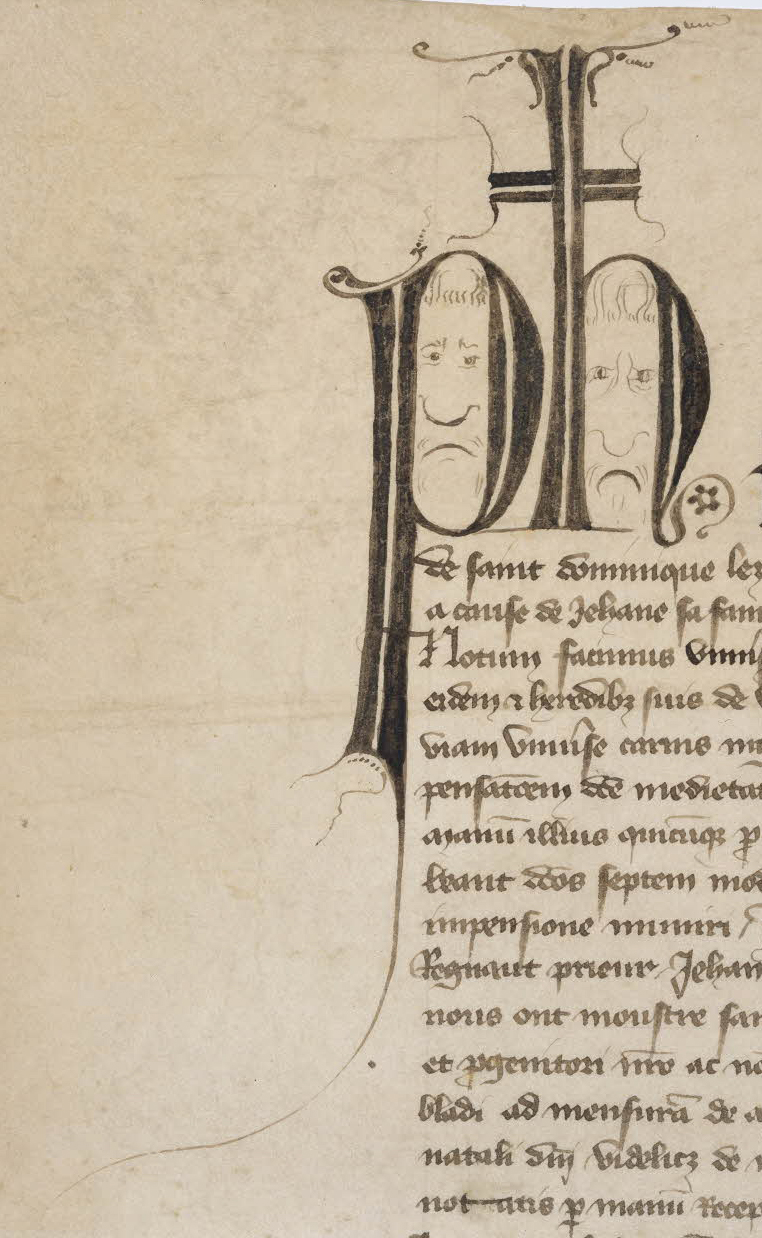 Ph
de saint dominique lez
a cause de Jehane sa fam
Notum facimus vniu
eidem & heredibz suis de
viam vniuse carnis
pensatōem dc̄e medietat
manū illius quicūqz p̄
leuant dc̄os septem mod
impensione muniri /
Regnaut prieur Jehan
nous ont monstre
et pgenitori nr̄o ac no
bladi ad mensurā de a
natali dm̄ videlicz de
not aris p manū Recep